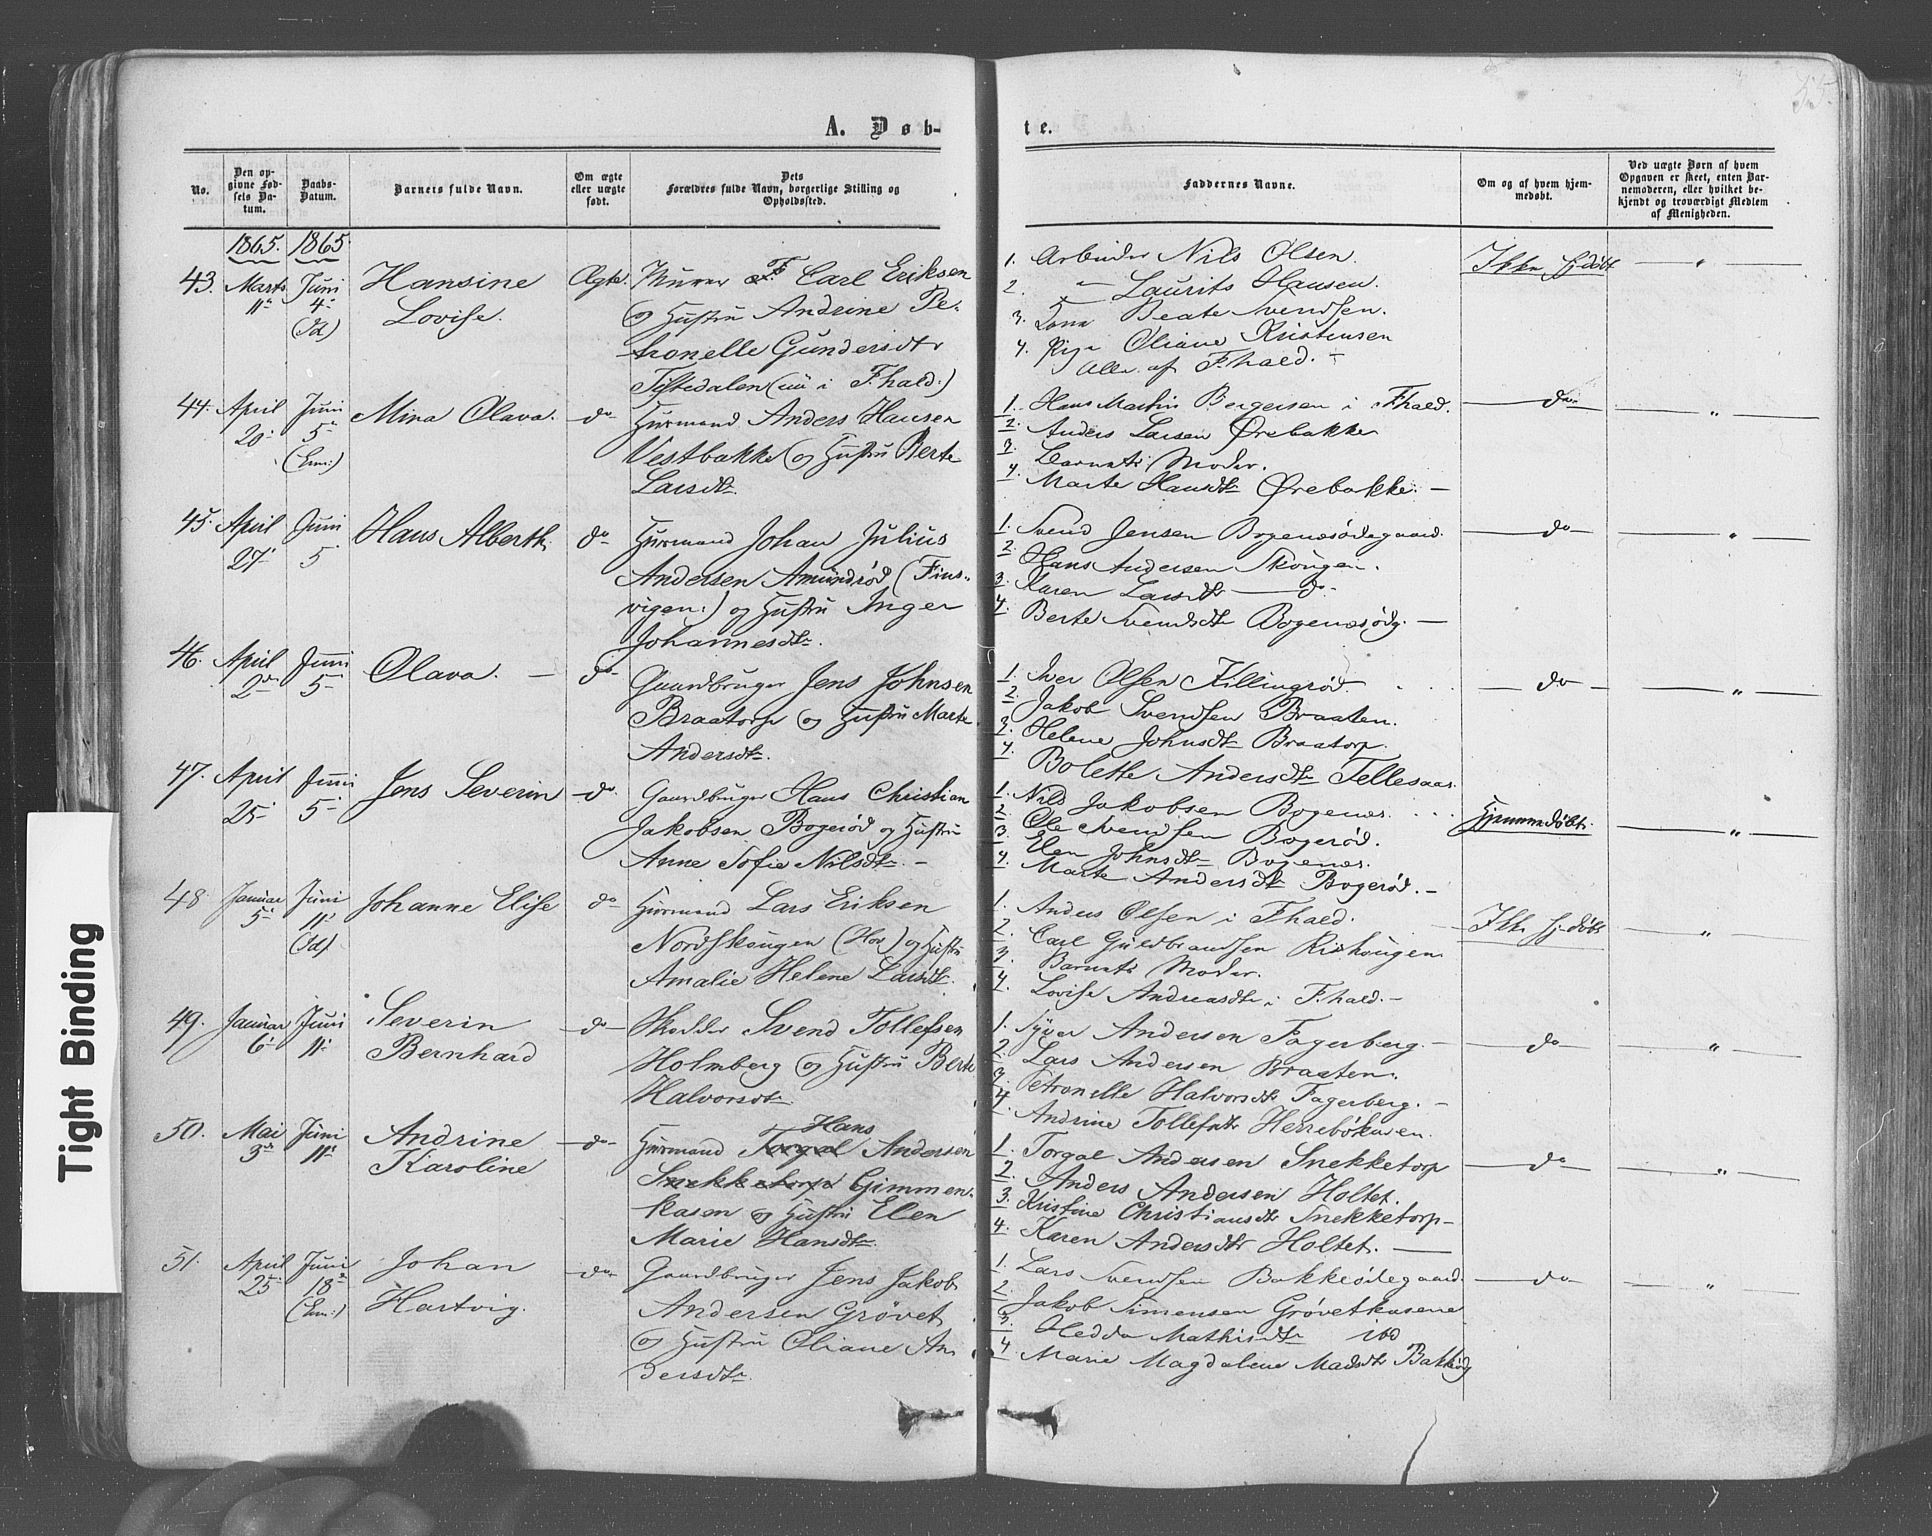 55.
A. Døb-
te.
No.
Den op-
givne Fød-
sels Da-
tum.
Daabs-
Datum.
Barnets fulde Navn.
Om ægte
eller uægte
født.
Dets
Forældres fulde Navn, borgerlige Stilling og
Opholdssted.
Faddernes Navne.
Om og af hvem hjem-
medøbt.
Ved uægte Børn af hvem
Opgaven er skeet, enten Bar-
nemoderen, eller hvilket be-
kjendt og troværdigt Medlem
af Menigheden.
1865. 1865.
43. Marts
11
Juni
4
(Id)
Hansine
Lovise.
Ægte.
Murer Carl Eriksen
og Hustru Andrine Pe-
tronelle Gundersdtr
Tistedalen (nu i Fhald.)
1. Arbeider Nils Olsen.
2. " Laurits Hansen.
3. Kone Beate Svendsen.
4. Pige Oliane Kristensen
Alle af Fhald. -
Ikke hj.døbt
"
44. April
20
Juni
5
(Em:)
Mina Olava.
do
Husmand Anders Hansen
Vestbakke og Hustru Berte
Larsdtr
1. Hans Martin Bergersen i Fhald.
2. Anders Larsen Ørebakke
3. Barnets Moder.
4. Marte Hansdtr Ørebakke. -
do
"
45. April
27
Juni
5
Hans Alberth
do
Husmand Johan Julius
Andersen Amundrød (Fins-
vigen:) og Hustru Inger
Johannesdtr.
1. Svend Jensen Bogenæsødegaard.
2. Hans Andersen Skougen.
3. Karen Larsdtr - do -
4. Berte Svendsdtr Bogenæsødg. -
do
"
46. April
2
Juni
5
Olava. -
do
Gaardbruger Jens Johnsen
Braatorp og Hustru Marte
Andersdtr.
1. Iver Olsen Killingrød.
2. Jakob Svendsen Braaten.
3. Helene Johnsdtr Braatorp.
4. Bolette Andersdtr Tellesaas.
do
"
47. April
25
Juni
5
Jens Severin
do
Gaardbruger Hans Christian
Jakobsen Bogerød og Hustru
Anne Sofie Nilsdtr. -
1. Nils Jakobsen Bogenæs.
2. Ole Svendsen Bogerød.
3. Elen Johnsdtr Bogenæs.
4. Marte Andersdtr Bogerød. -
Hjemmedøbt.
"
48. Januar
5
Juni
11
(Id)
Johanne Elise
do
Husmand Lars Eriksen
Nordskougen (Hov) og Hustru
Amalie Helene Larsdtr.
1. Anders Olsen i Fhald.
2. Carl Guldbrandsen Riskougen
3. Barnets Moder.
4. Lovise Andreasdtr i Fhald. -
Ikke hj-døbt
"
49. Januar
6
Juni
11
Severin
Bernhard
do
Skredder Svend Tollefsen
Holmberg og Hustru Berte
Halvorsdtr
1. Syver Andersen Fagerberg. -
2. Lars Andersen Braaten.
3. Petronelle Halvorsdtr Fagerberg. -
4. Andrine Tollefsdtr Herrebøkasen.
do
"
50. Mai
3
Juni
11
Andrine
Karoline
do
Hans
Husmand Torgal Andersen
Snekketorp Gimmen-
kasen og Hustru Elen
Marie Hansdtr.
1. Torgal Andersen Snekketorp
2. Anders Andersen Holtet.
3. Kristine Christiansdtr Snekketorp -
4. Karen Andersdtr Holtet. -
do
"
51. April
25
Juni
18
(Em:)
Johan
Hartvig.
do
Gaardbruger Jens Jakob
Andersen Grøvet
og Hustru Oliane An-
dersdtr.
1. Lars Svendsen Bakkeødegaard.
2. Jakob Simensen Grøvetkasene
3. Hedda Mathisdtr ibd
4. Marie Magdalene Madsdtr Bakkeødg
do
"
Tight Binding